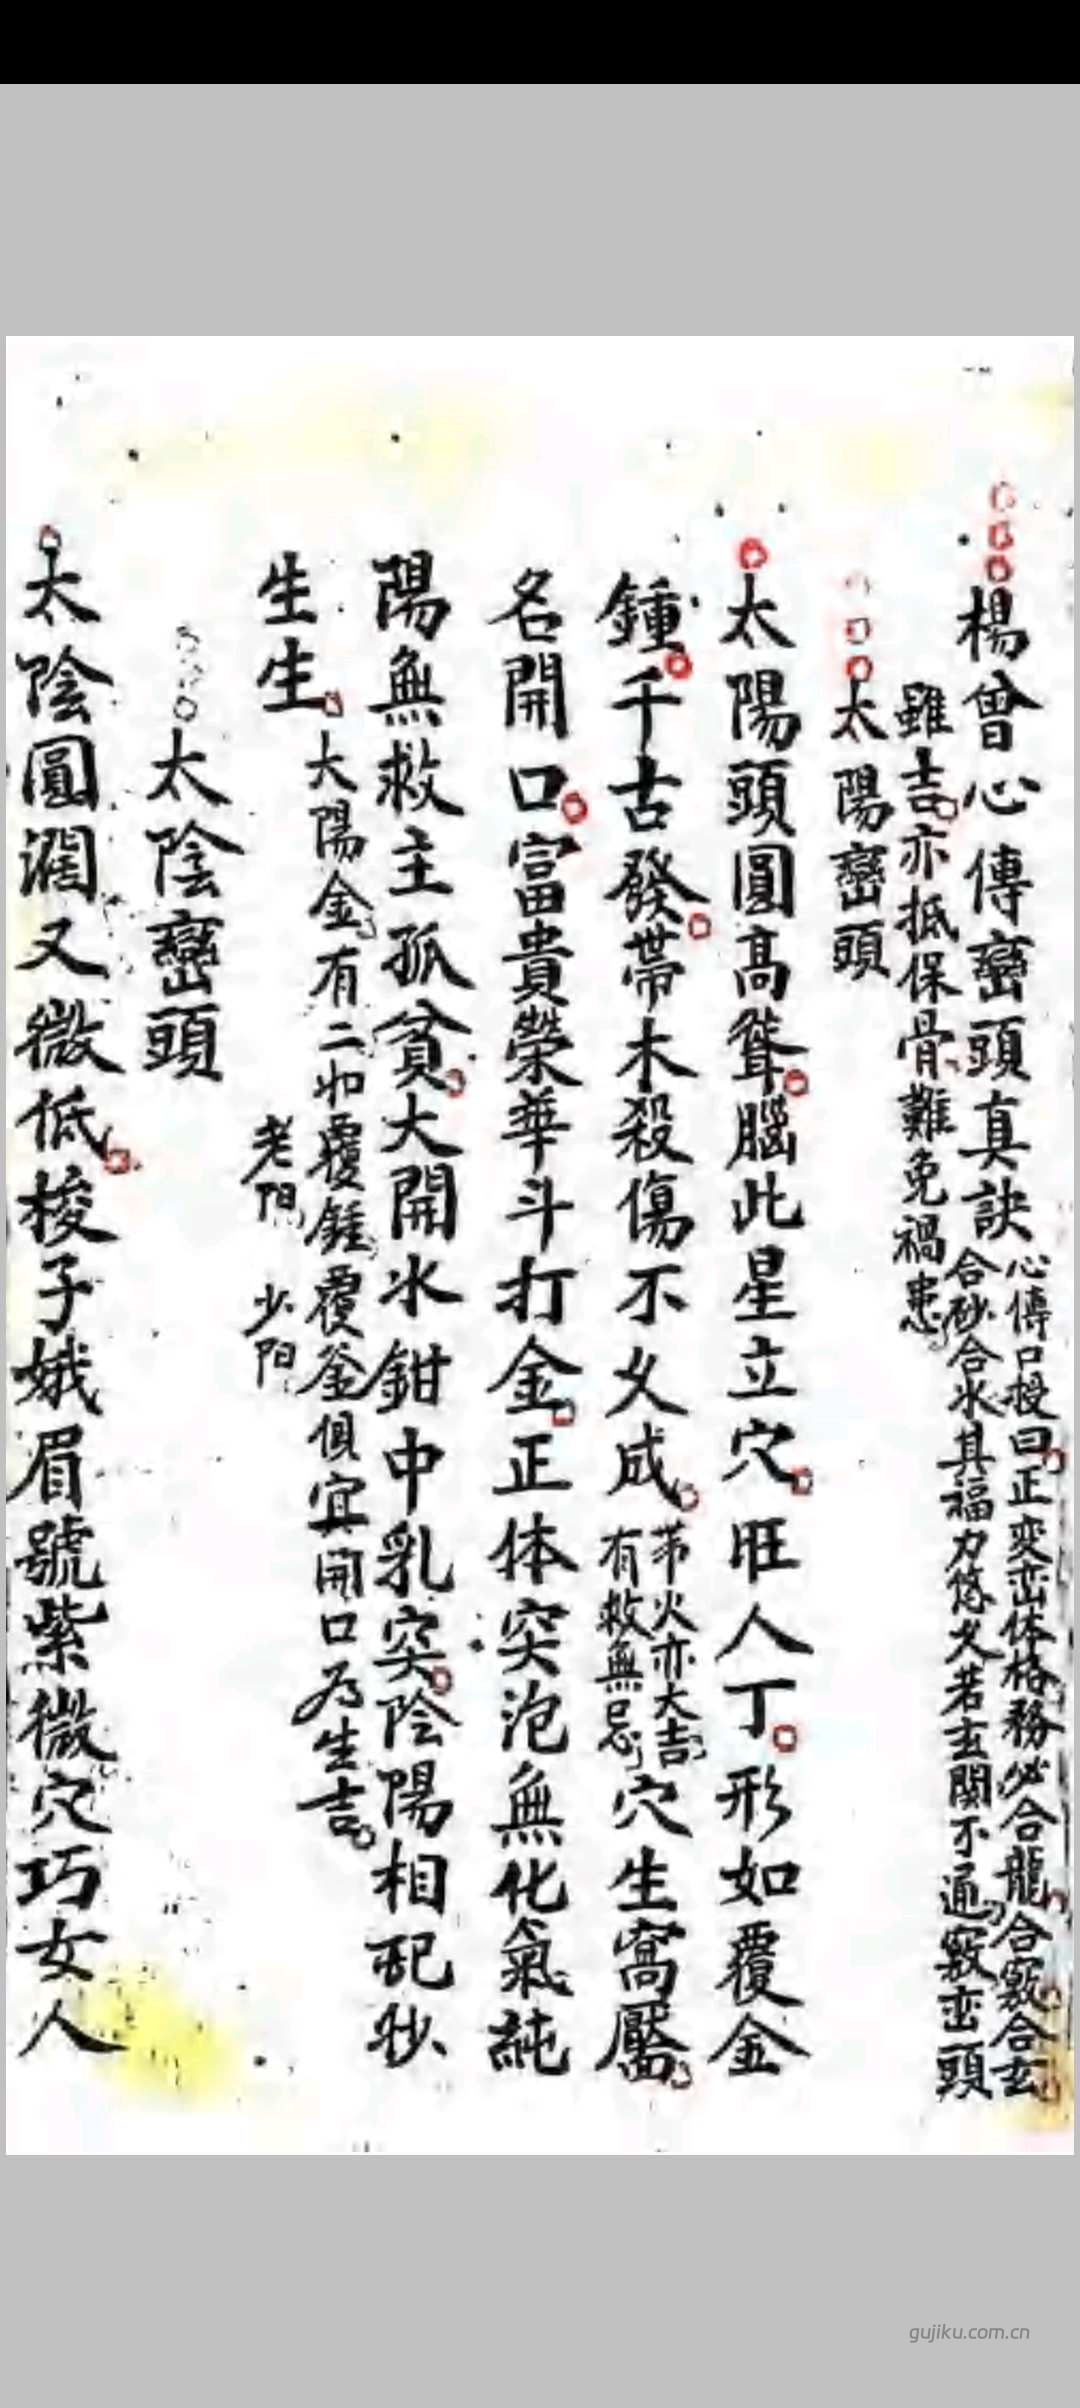 楊曾心傳巒頭真訣
心傳口授曰正变峦体格務必合龍合竅合玄
合砂合水其福力悠久若玄関不通竅峦頭
雖吉亦抵保骨難免禍患
太陽巒頭
太陽頭圓高聳腦此星立穴旺人丁形如覆金
鍾千古發帶木殺傷不久成
带火亦大吉
有救無忌
穴生窩靨
名開口富貴榮華斗打金正体突泡無化氣純
陽無救主孤貧大開水鉗中乳突陰陽相配妙
生生
太陽金有二如覆鍾覆釜俱宜開口为生吉
老阳 少阳
太陰巒頭
太陰圓濶又微低梭子娥眉號紫微穴巧女人
gujiku.com.cn